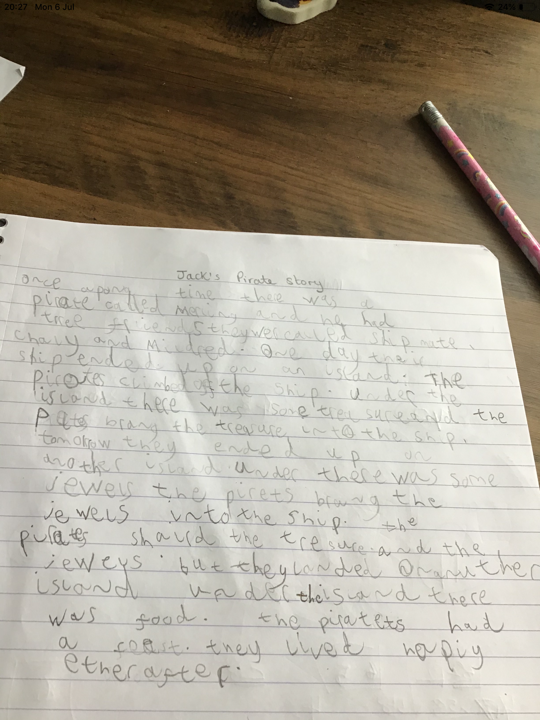 20:27 Mon 6 Jul
24%
Jack's Pirate story
once apon time there was a
pirate called and he had
tree friends they wer called ship mate,
charly and Mildred. One day their
ship ended up on an island. The
pirates climbed off the ship. under the
island there was some treasure and the
brang the treasure into the ship.
tomorrow they ended up on
another island. under there was some
jewels the pirets brang the
jewels into the ship. the
pirates shaird the tresure and the
jeweys. but they landed On anuther
island under the island there
was food. the piratets had
a feast. they lived happiy
ether after.